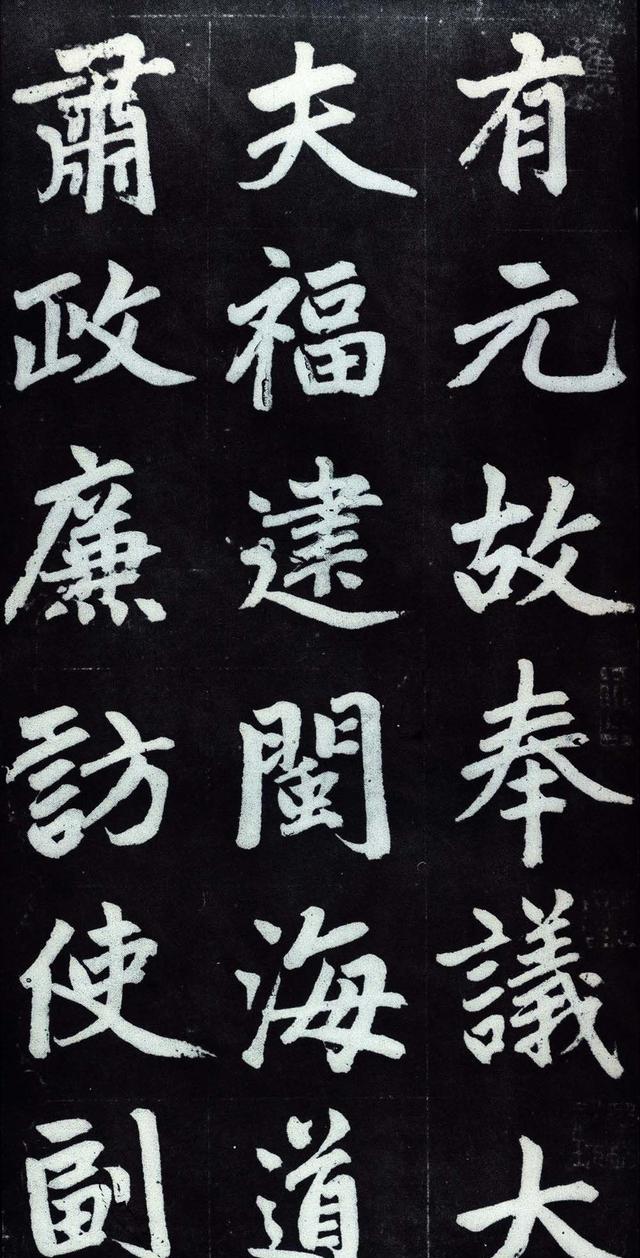 有元故奉議大
夫福建閩海道
肅政廉訪使副